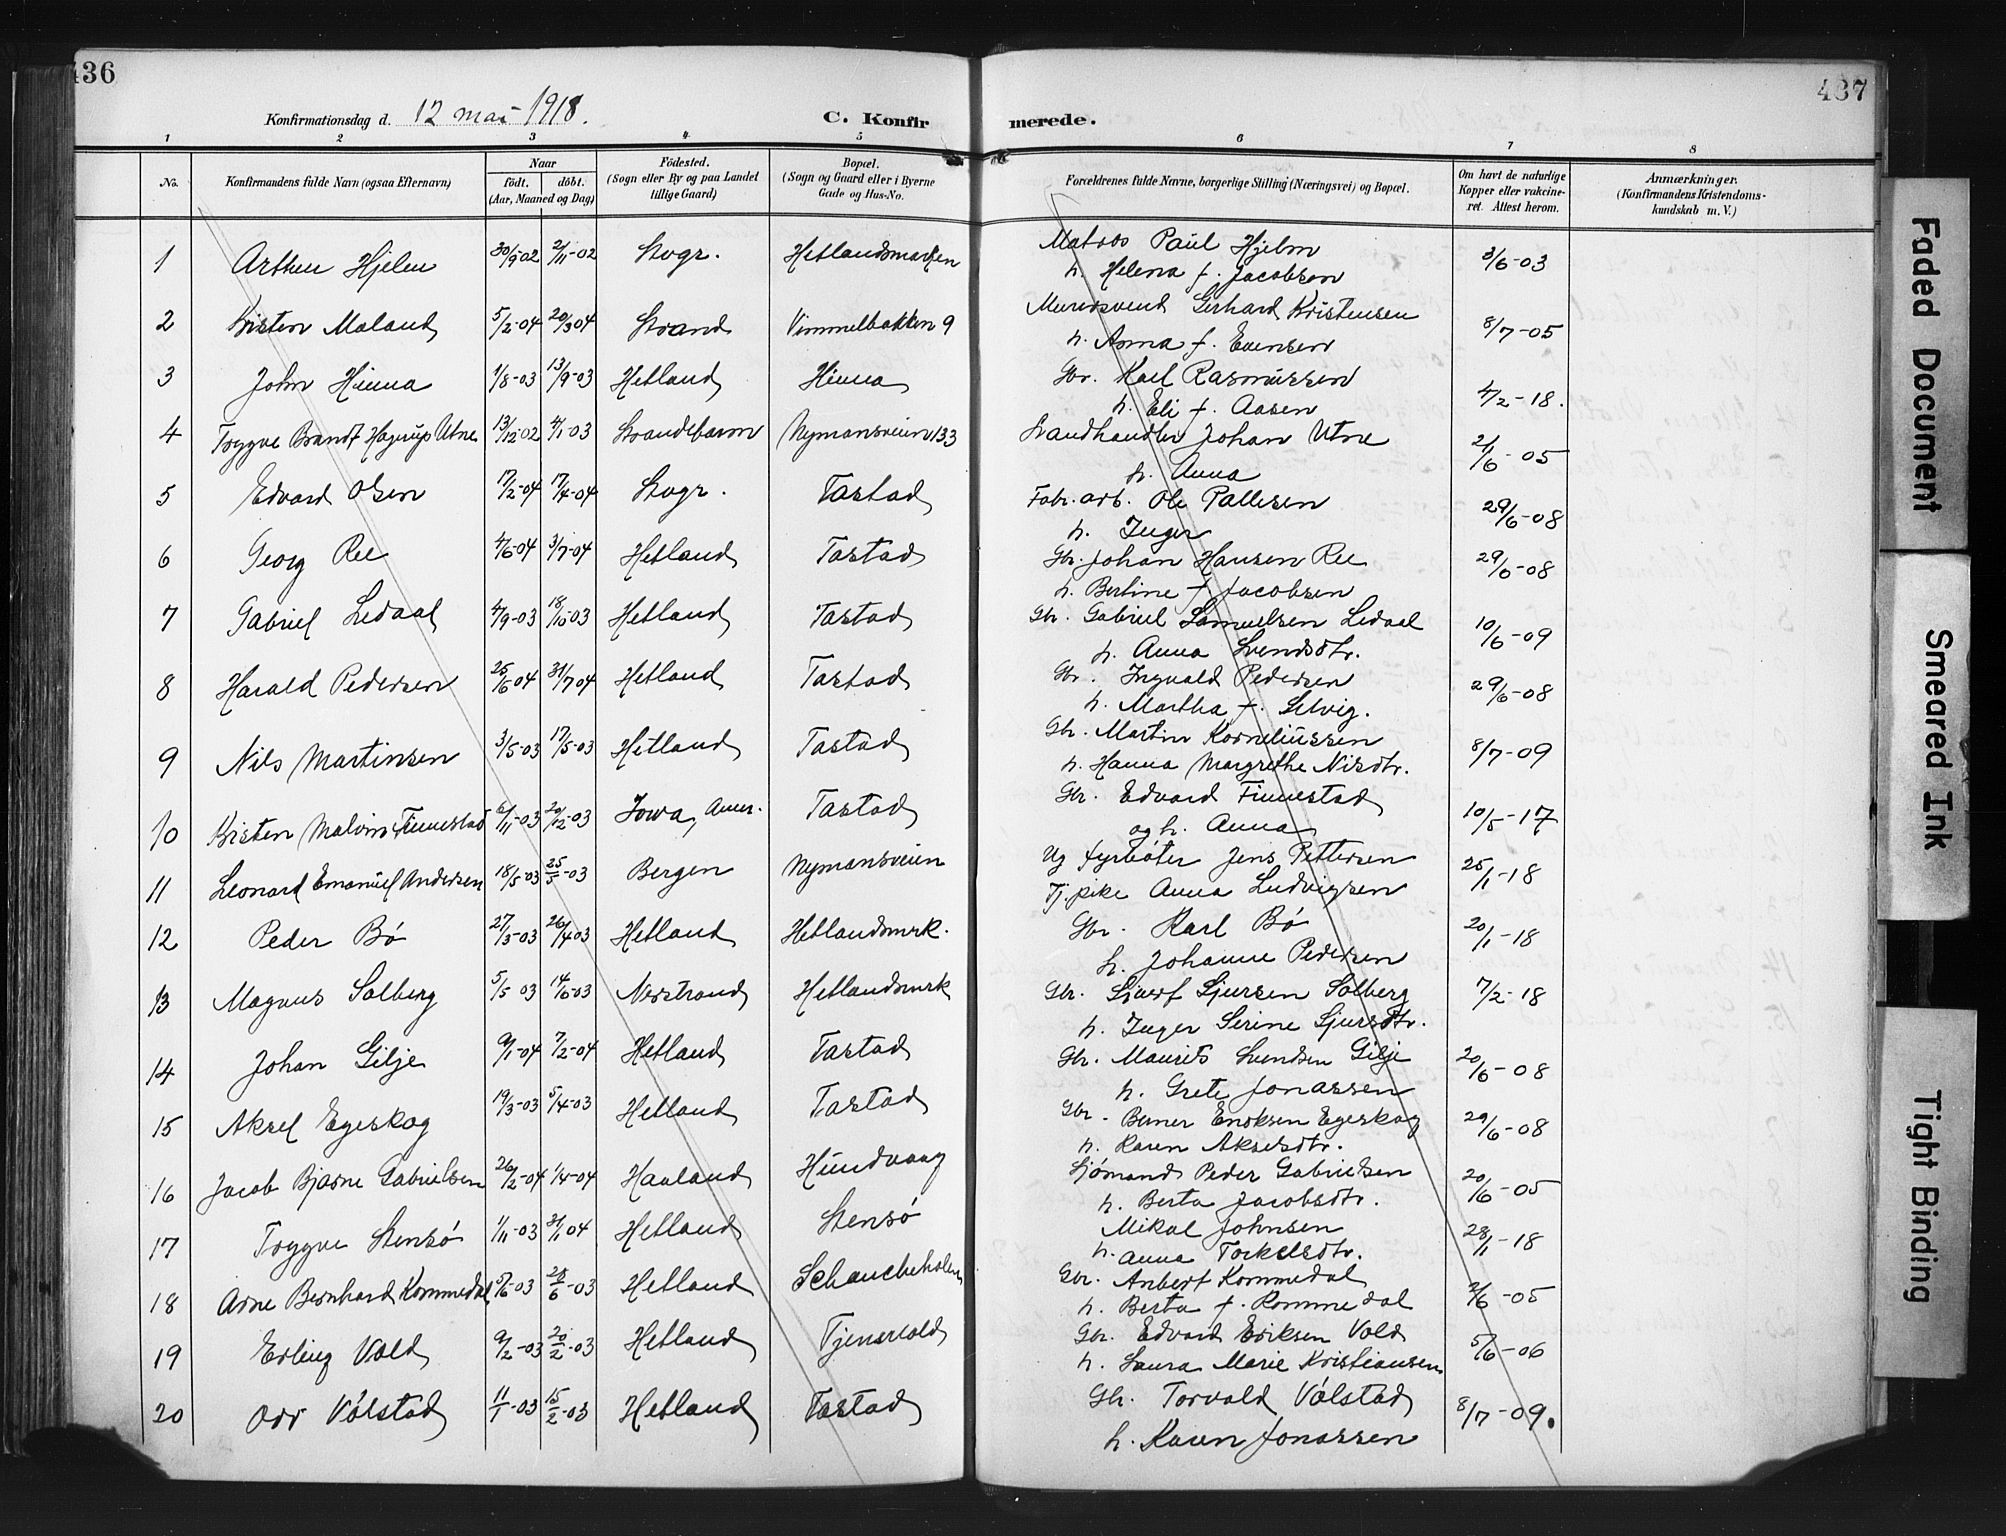 436
Konfirmationsdag d. 12 mai 1918.
C. Konfir
merede.
437
1 2 3 4 5 6 7 8
No.
Konfirmandens fulde Navn (ogsaa Efternavn)
Naar
födt. döbt.
(Aar, Maaned og Dag)
Födested.
(Sogn eller By og paa Landet
tillige Gaard)
Bopæl.
(Sogn og Gaard eller i Byerne
Gade og Hus-No.
Forældrenes fulde Navne, borgerlige Stilling (Næringsvei) og Bopæl.
Om havt de naturlige
Kopper eller vakcine-
ret. Attest herom.
Anmærkninger.
(Konfirmandens Kristendoms-
kundskab m. V.)
1 Arthur Hjelm 30/9 02 2/11-02 Stvgr. Hetlandsmarken Matros Paul Hjelm 3/6-03
h. Helena f. Jacobsen
2 Kristen Maland 5/2-04 20/3 04 Strand Vimmelbakken 9 Murersvend Gerhard Kristensen 8/7-05
h. Anna f. Evensen
3 John Hinna 1/8-03 13/9-03 Hetland Hinna Gbr. Karl Rasmussen 4/2-18.
h. Eli f. Aasen
4 Trygve Brandt Hagrup Utne 13/12-02 4/1-03 Strandebarm Nymansveien 133 Landhandler Johan Utne 2/6-05
h. Anna
5 Edvard Olsen 17/2-04 17/4-04 Stvgr. Tastad Fabr. arb. Ole Pallesen 29/6-08
h. Inger
6 Georg Ree 4/6-04 3/7-04 Hetland Tastad Gbr. Johan Hansen Ree 29/6-08
h. Bertine f. Jacobsen
7 Gabriel Ledaal 4/9-03 18/10-03 Hetland Tastad Gbr. Gabriel Samuelsen Ledaal 10/6-09
h. Anna Svendsdtr.
8 Harald Pedersen 25/6 04 31/7 04 Hetland Tastad Gbr. Ingvald Pedersen 29/6-08
h. Martha f. Selvig.
9 Nils Martinsen 3/5-03 17/5-03 Hetland Tastad Gbr. Martin Korneliussen 8/7-09
h. Hanna Margrethe Nilsdtr.
10 Kristen Malvin Finnestad 6/11-03 20/12-03 Iowa, Amer. Tastad Gbr. Edvard Finnestad 10/5-17
og h. Anna
11 Leonard Emanuel Andersen 18/5-03 25/5-03 Bergen Nymansveien Ug fyrbøter Jens Pettersen 25/1-18
Tj. pike Anna Ludvigsen
12 Peder Bö 27/3-03 26/4 03 Hetland Hetlandsmrk. Gbr. Karl Bö 20/1-18
h. Johanne Pedersen
13 Magnus Solberg 5/5 03 14/6-03 Nerstrand Hetlandsmrk Gbr. Sjurs Sjursen Solberg 7/2-18
h. Inger Serine Sjursdtr.
14 Johan Gilje 9/1-04 7/2-04 Hetland Tastad Gbr. Maurits Svendsen Gilje 20/6-08
h. Grete Jonassen
15 Aksel Egeskog 19/3-03 5/4-03 Hetland Tastad Gbr. Berner Enoksen Egeskog 29/6-08
h. Karen Akselsdtr.
16 Jacob Bjarne Gabrielsen 26/2-04 1/4-04 Haaland Hundvaag Sjømand Peder Gabrielsen 20/6-05
h. Berta Jacobsdtr.
17 Trygve Stensö 1/11-03 31/1 04 Hetland Stensö Mikal Johnsen 28/1-18
h. Anna Torkelsdtr.
18 Arne Bernhard Kommedal 5/6-03 28/6-03 Hetland Schancheholen Gbr. Anbert Kommedal 2/6-05
h. Berta f. Kommedal
19 Erling Vold 9/2-03 20/2-03 Hetland Tjensvold Gbr. Edvard Eriksen Vold 5/6-06
h. Laura Marie Kristiansen
20 Odd Völstad 11/1-03 15/2-03 Hetland Tastad Gbr. Torvald Völstad 8/7-09.
h. Karen Jonassen
Faded Document
Smeared Ink
Tight Binding